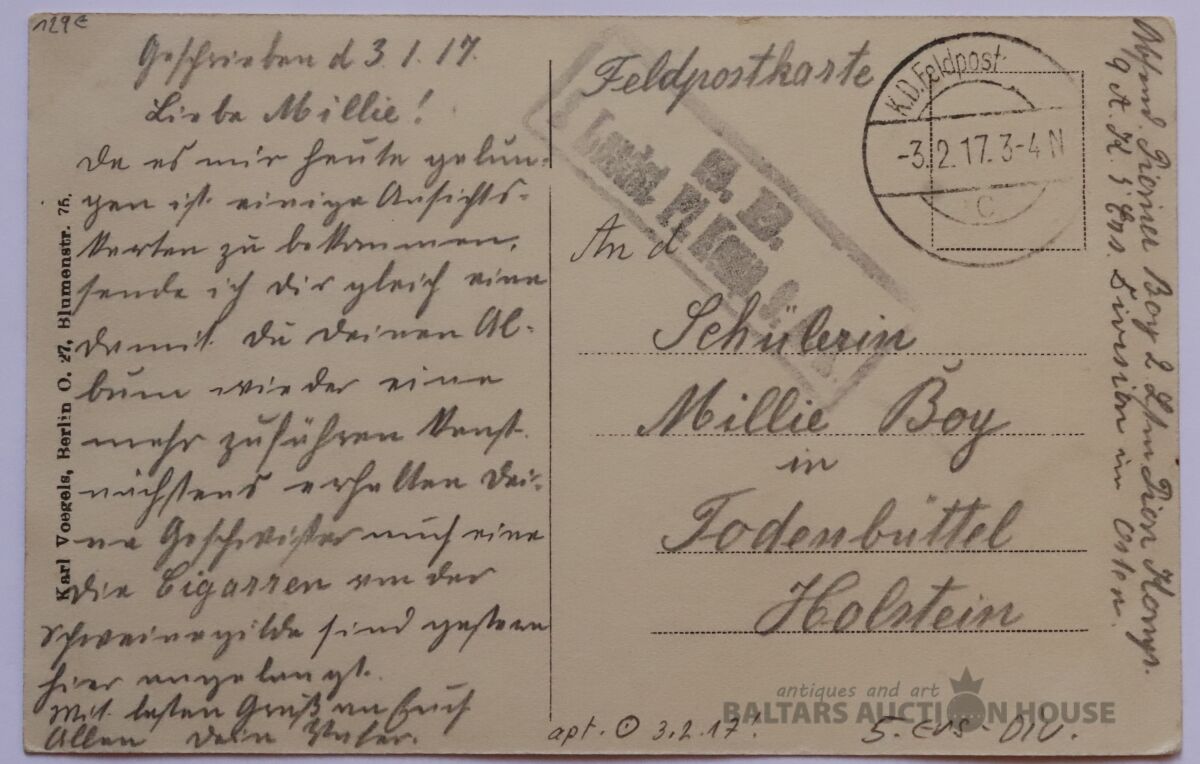 129 €
Geschrieben d 3.1.17.
Liebe Millie!
Da es mir heute gelun-
gen ist einige Ansichts-
karten zu bekommen,
sende ich Dir gleich eine
damit Du Deinen Al-
bum wieder eine
mehr zuführen kanst.
nächstens erhalten Dei-
ne Geschwister auch eine
Die Cigarren von der
Schweinegilde sind gestern
hier angelangt.
Mit besten Gruß an Euch
Allen Dein Vater.
Karl Voegels, Berlin O. 27, Blumenstr. 75.
Feldpostkarte
K.D. Feldpost
-3.2.17. 3-4 N
C
S. B.
Landst. Pi. Komp.
An d
Schülerin
Millie Boy
in
Todenbüttel
Holstein
Absend. Pionier Boy 2 Lstm Pion Komp.
A. K. 5 Ers. Division im Osten.
apt. ⊙ 3.2.17!
5. Ers-Div.
antiques and art
BALTARS AUCTION HOUSE